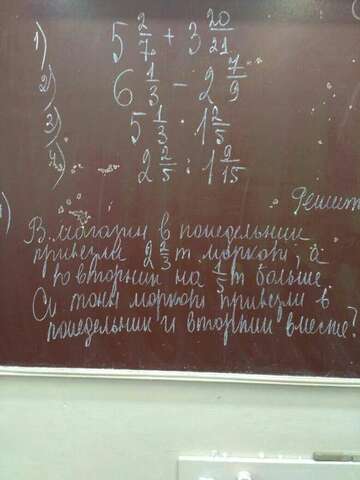 1) 5 2/7 + 3 20/21
2) 6 1/3 - 2 7/9
3) 5 1/3 · 1 2/5
4) 2 2/5 : 1 2/15
Решит
В магазин в понедельник
привезли 2 2/3 т моркови, а
во вторник на 1/5 т больше.
тонн моркови привезли в
понедельник и вторник вместе?